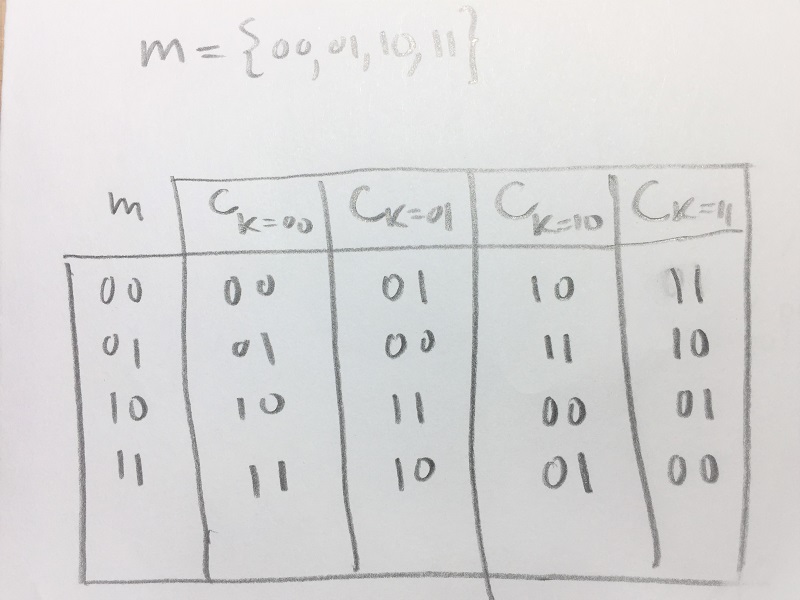 m = {00,01,10,11}
m C_{K=00} C_{K=01} C_{K=10} C_{K=11}
00 00 01 10 11
01 01 00 11 10
10 10 11 00 01
11 11 10 01 00